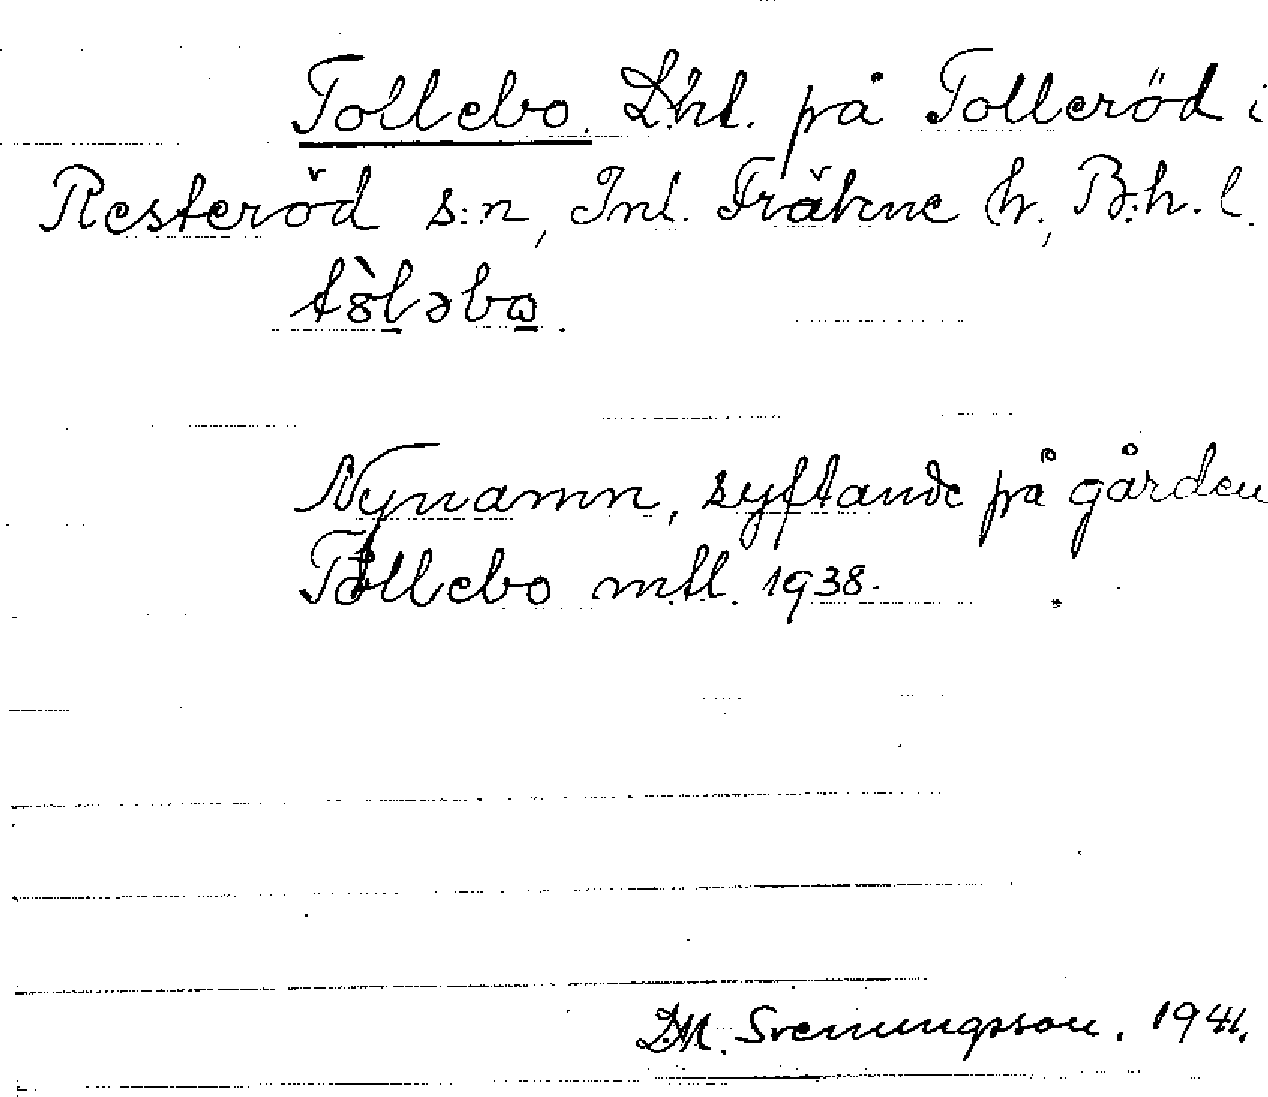 Tollebo. Lht. på Tolleröd i
Resteröd s:n, Inl. Fräkne h., B.h.l.
Nynamn, syftande på gården
Tollebo m.fl. 1938.
D.M. Svenungsson. 1941.